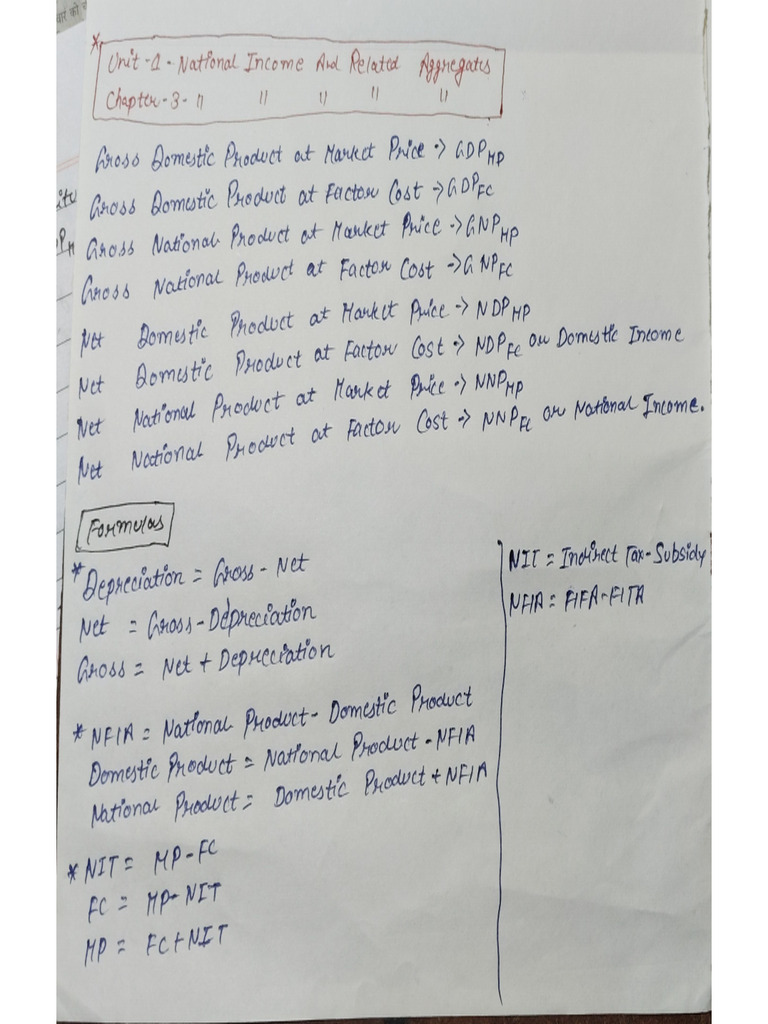 * Unit-1- National Income And Related Aggregates
Chapter-3- " " " " "
Gross Domestic Product at Market Price → GDPMP
Gross Domestic Product at Factor Cost → GDPFC
Gross National Product at Market Price → GNPMP
Gross National Product at Factor Cost → GNPFC
Net Domestic Product at Market Price → NDPMP
Net Domestic Product at Factor Cost → NDPFC or Domestic Income
Net National Product at Market Price → NNPMP
Net National Product at Factor Cost → NNPFC or National Income.
Formulas
* Depreciation = Gross - Net
Net = Gross - Depreciation
Gross = Net + Depreciation
* NFIA = National Product - Domestic Product
Domestic Product = National Product - NFIA
National Product = Domestic Product + NFIA
* NIT = MP - FC
FC = MP - NIT
MP = FC + NIT
NIT = Indirect Tax - Subsidy
NFIA = FIFA - FITA